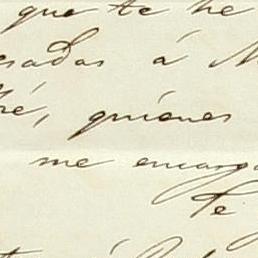 que te he
sadas á M
ré, quienes
me encarg
Te